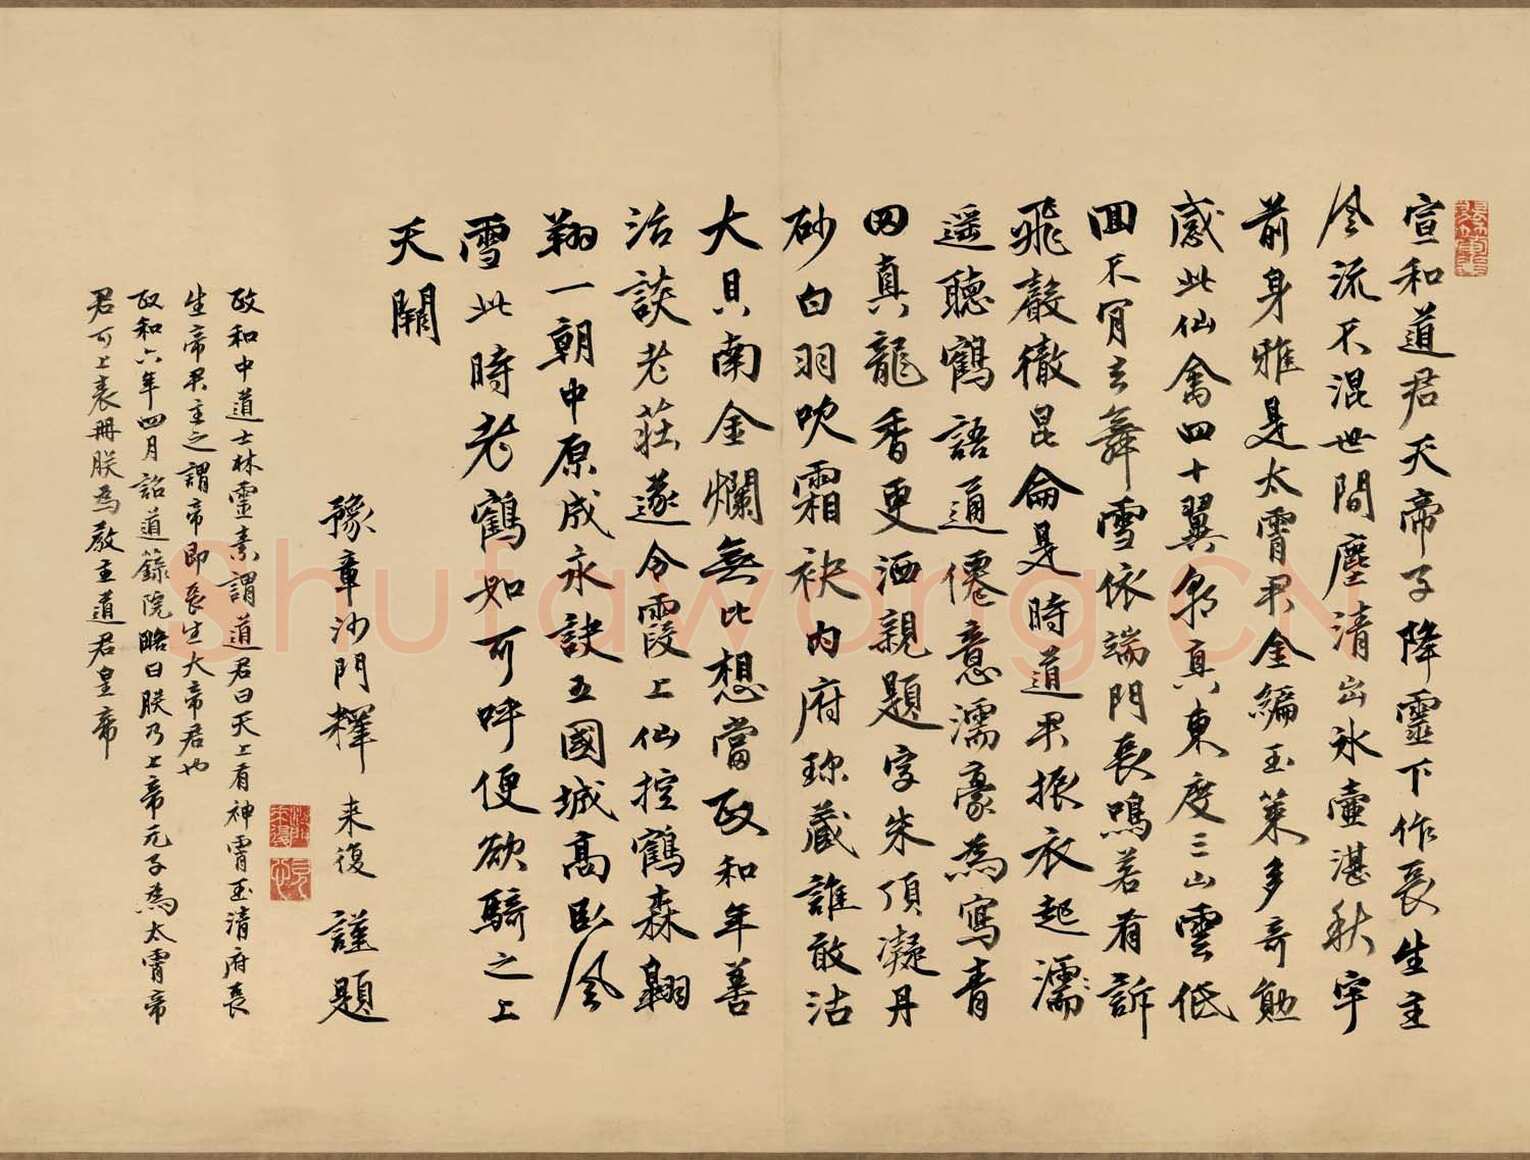 宣和道君天帝子降靈下作長生主
風流不混世間塵清出冰壺湛秋宇
前身雅是太霄君金編玉策多奇勳
感此仙禽四十翼朝真東度三山雲低
回不肯去舞雪依端門長鳴若有訴
飛聲徹昆侖是時道君振衣起濡
遥聽鶴語通僊意濡豪為寫青
田真龍香更洒親題字朱頂凝丹
砂白羽吹霜袂內府珎藏誰敢沽
大貝南金爛無比想當政和年善
活談老莊遂令霞上仙控鶴森翱
翔一朝中原成永訣五國城高臥風
雪此時老鶴如可呼便欲騎之上
天關
豫章沙門釋 来復 謹題
政和中道士林靈素謂道君曰天上有神霄玉清府長
生帝君主之謂帝即長生大帝君也
政和六年四月詔道籙院略曰朕乃上帝元子為太霄帝
君可上表冊朕為教主道君皇帝
Shufawong.CN